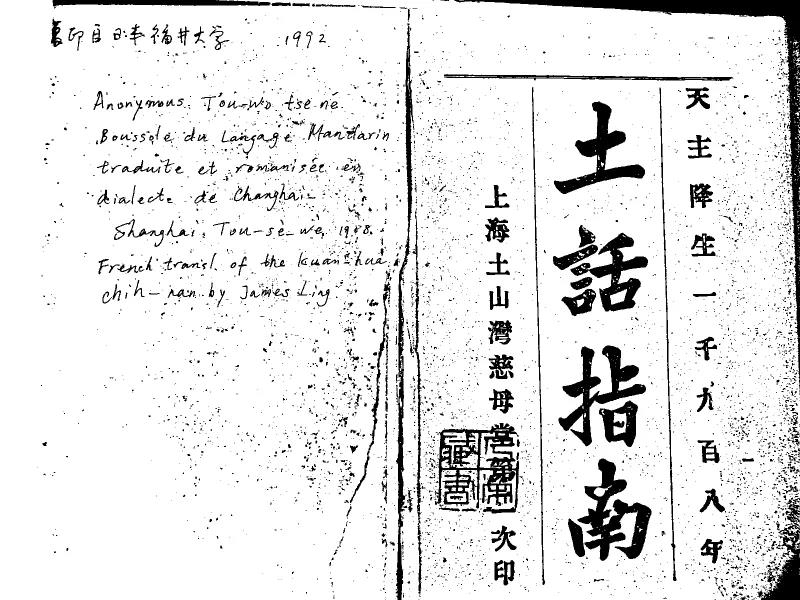 復印自日本福井大学 1992
Anonymous. Tou-wo tse né
Boussole du Langage Mandarin
traduite et romanisée en
dialecte de Changhai
Shanghai, Tou-sè-wè, 1908.
French transl. of the Kuan hua
chih-nan by James Ling
天主降生一千九百八年
土話指南
上海土山灣慈母堂第 次印
藏書